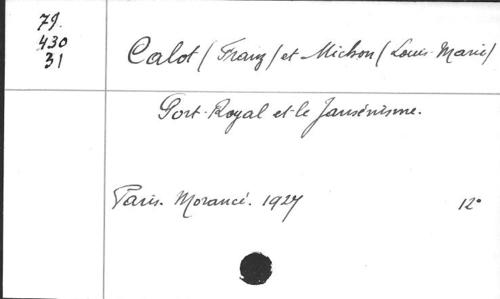 79.
430
31
Calot (Franz) et Michon (Louis-Marie)
Port-Royal et le Jansénisme.
Paris. Morancé. 1927 12°